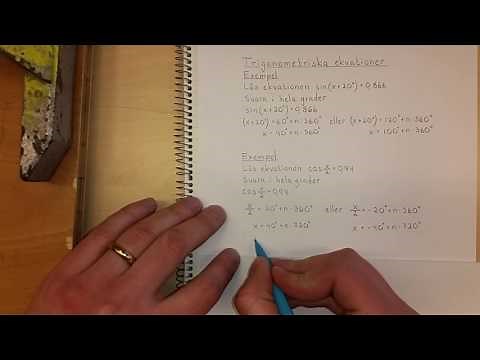 Trigonometriska ekvationer
Exempel
Lös ekvationen sin(x+20°)=0,866
Svara i hela grader
sin(x+20°)=0,866
(x+20°)=60°+n·360° eller (x+20°)=120°+n·360°
x=40°+n·360° x=100°+n·360°
Exempel
Lös ekvationen cos x/2=0,94
Svara i hela grader
cos x/2=0,94
x/2=20°+n·360° eller x/2=-20°+n·360°
x=40°+n·720° x=-40°+n·720°